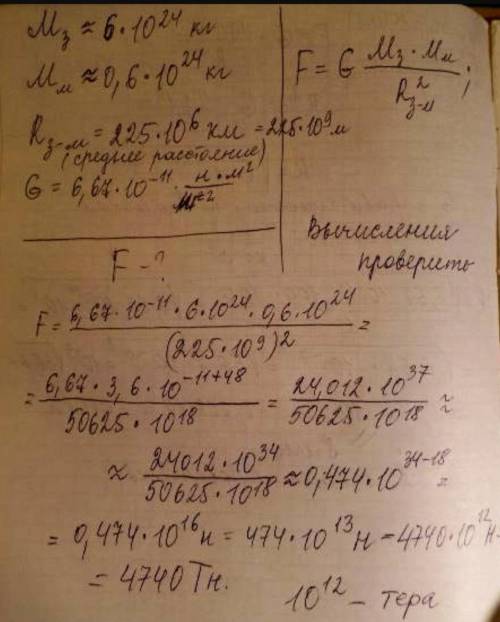 Mз ≈ 6·10²⁴ кг
Mм ≈ 0,6·10²⁴ кг
Rз-м = 225·10⁶ км = 225·10⁹ м
(среднее расстояние)
G = 6,67·10⁻¹¹ · н·м²/кг²
F = G Mз·Mм / R²з-м ;
F - ?
Вычисления
проверить
F = 6,67·10⁻¹¹·6·10²⁴·0,6·10²⁴ / (225·10⁹)² =
= 6,67·3,6·10⁻¹¹⁺⁴⁸ / 50625·10¹⁸ = 24,012·10³⁷ / 50625·10¹⁸ ≈
≈ 24012·10³⁴ / 50625·10¹⁸ ≈ 0,474·10³⁴⁻¹⁸ =
= 0,474·10¹⁶ н = 474·10¹³ Н = 4740·10¹² Н =
= 4740 Тн.
10¹² - тера